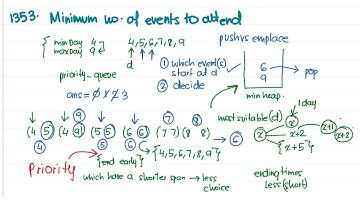 1353. Minimum no. of events to attend
{ min Day 4
max Day 9
4, 5, 6, 7, 8, 9
d
push vs emplace
priority-queue
① which event(s) start at d
② decide
6
9
pop
min heap.
ans = 0 1 2 3
(4 5) (4 9) (5 5) (6 6) (7 7) (8 8)
④ ⑨ ⑤ ⑥
→ 6
{end early}
{4, 5, 6, 7, 8, 9}
most suitable (d)
1 day
x
x
x+2
x+1
x+2
{x+5}
Priority
which have a shorter span → less choice
ending times less (short)